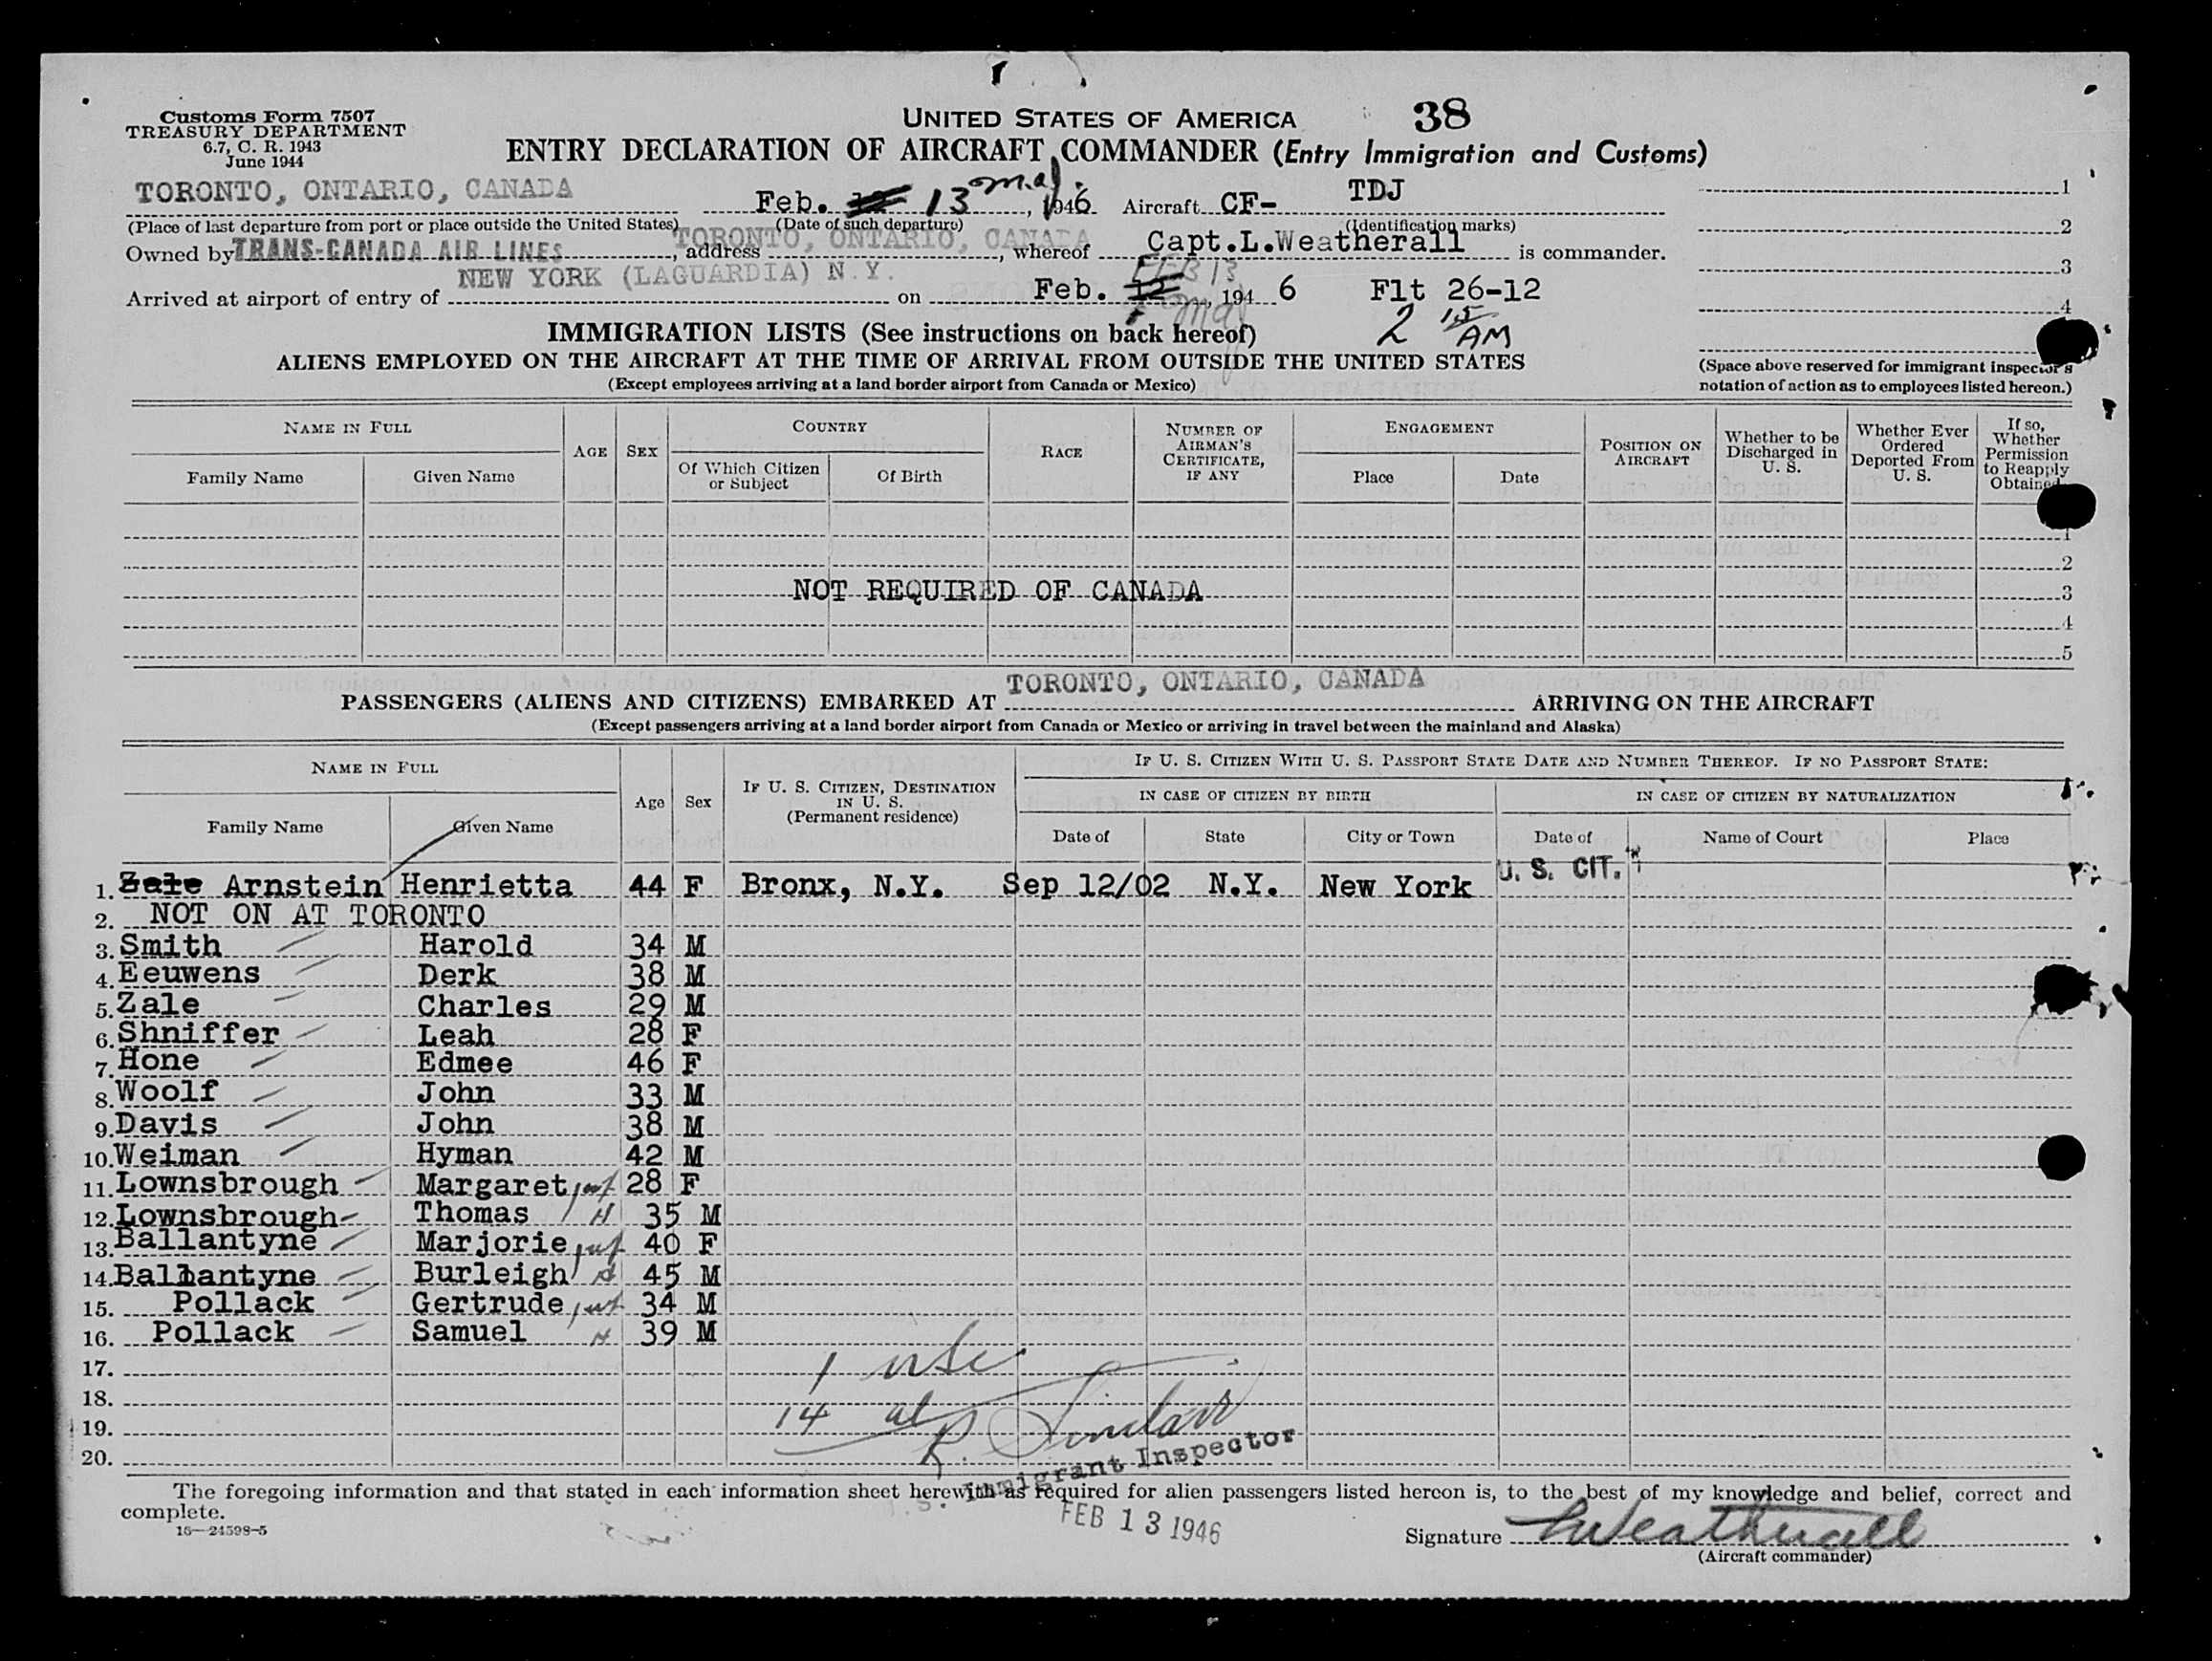 Customs Form 7507
TREASURY DEPARTMENT
6.7, C. R. 1943
June 1944
UNITED STATES OF AMERICA 38
ENTRY DECLARATION OF AIRCRAFT COMMANDER (Entry Immigration and Customs)
TORONTO, ONTARIO, CANADA Feb. 13 maj. 1946 Aircraft CF- TDJ
(Place of last departure from port or place outside the United States) (Date of such departure) (Identification marks)
Owned by TRANS-CANADA AIR LINES, address TORONTO, ONTARIO, CANADA, whereof Capt.L.Weatherall is commander.
Arrived at airport of entry of NEW YORK (LAGUARDIA) N.Y. on Feb. 12 FEB 13 maj, 194 6 Flt 26-12
2 15 AM
1
2
3
4
IMMIGRATION LISTS (See instructions on back hereof)
ALIENS EMPLOYED ON THE AIRCRAFT AT THE TIME OF ARRIVAL FROM OUTSIDE THE UNITED STATES
(Except employees arriving at a land border airport from Canada or Mexico)
(Space above reserved for immigrant inspector's
notation of action as to employees listed hereon.)
NAME IN FULL AGE SEX COUNTRY RACE NUMBER OF AIRMAN'S CERTIFICATE, IF ANY ENGAGEMENT POSITION ON AIRCRAFT Whether to be Discharged in U. S. Whether Ever Ordered Deported From U. S. If so, Whether Permission to Reapply Obtained
Family Name Given Name Of Which Citizen or Subject Of Birth Place Date
1
2
NOT REQUIRED OF CANADA 3
4
5
PASSENGERS (ALIENS AND CITIZENS) EMBARKED AT TORONTO, ONTARIO, CANADA ARRIVING ON THE AIRCRAFT
(Except passengers arriving at a land border airport from Canada or Mexico or arriving in travel between the mainland and Alaska)
NAME IN FULL Age Sex IF U. S. CITIZEN, DESTINATION IN U. S. (Permanent residence) IF U. S. CITIZEN WITH U. S. PASSPORT STATE DATE AND NUMBER THEREOF. IF NO PASSPORT STATE:
IN CASE OF CITIZEN BY BIRTH IN CASE OF CITIZEN BY NATURALIZATION
Family Name Given Name Date of State City or Town Date of Name of Court Place
1. Zale Arnstein Henrietta 44 F Bronx, N.Y. Sep 12/02 N.Y. New York U. S. CIT.
2. NOT ON AT TORONTO
3. Smith Harold 34 M
4. Eeuwens Derk 38 M
5. Zale Charles 29 M
6. Shniffer Leah 28 F
7. Hone Edmee 46 F
8. Woolf John 33 M
9. Davis John 38 M
10. Weiman Hyman 42 M
11. Lownsbrough Margaret wf 28 F
12. Lownsbrough Thomas H 35 M
13. Ballantyne Marjorie wf 40 F
14. Ballantyne Burleigh H 45 M
15. Pollack Gertrude wf 34 M
16. Pollack Samuel H 39 M
17.
18.
19.
20.
1 usc
14 al
R. Sinclair
U. S. Immigrant Inspector
FEB 13 1946
The foregoing information and that stated in each information sheet herewith as required for alien passengers listed hereon is, to the best of my knowledge and belief, correct and
complete.
16—24598-5
Signature LWeatherall
(Aircraft commander)